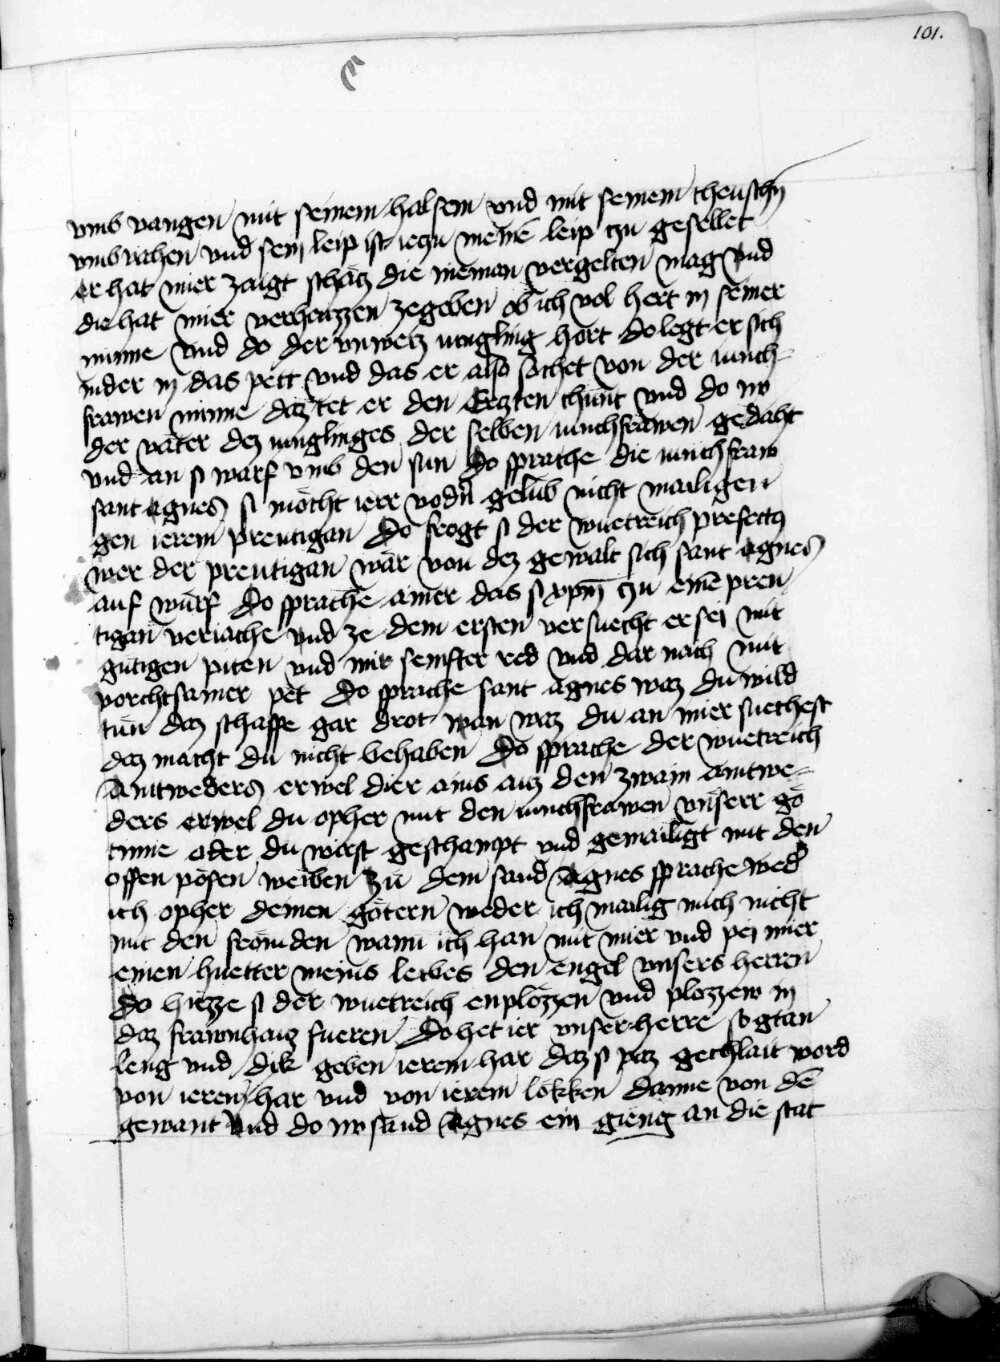 101.
vmb vangen mit seinem halsem vnd mit seinem cheuschn
vmbvahen vnd sein leip ist ieczu meinē leip czu gesellet
er hat mier zaigt schätz die nieman vergelten mag vnd
die hat mier verhaizzen zegeben ob ich vol hert in seiner
minne vnd do der vnweiz iungling hört do legt er sich
nider in das pett vnd das er also sichet von der iunch
frawen minne daz tet er den Erczten chunt vnd do nv
der vater dez iunglinges der selben iunchfrawen gedaht
vnd an si warf vmb den sun Do sprache die iunchfraw
sant Agnes si möcht ierr vodn gelüb nicht mailigen
gen ierem preutigan Do frogt si der wuetreich prefectus
wer der preutigan wär von dez gewalt sich sant Agnes
auf würf Do sprache ainer das si xpm czu einē preu
tigan veriache vnd ze dem ersten versuecht er sei mit
gütigen piten vnd mit semfter red vnd dar nach mit
vorchtsamer pet Do sprache sant Agnes waz du wild
tun daz schaffe gar drot wan waz du an mier suechest
daz macht du nicht behaben Do sprache der wuetreich
Aintweders erwel dier ains auz den zwain aintwe-
ders erwel du opher mit den iunchfrawen vnserr gö
tinne oder du wirst geschampt vnd gemailigt mit den
offen pösen weiben Zu dem sand Agnes sprache wed
ich opher deinen götern weder ich mailig mich nicht
mit den frömden wann ich han mit mier vnd pei mier
einen huetter meins leibes den engel vnsers herren
Do hiezze si der wuetreich enplözzen vnd plozzew in
daz frawnhauz fueren Do het ier vnser herre sogtan
leng vnd dik geben ierem har daz si paz gechlait word
von ierem har vnd von ierem lökken danne von dē
gewant vnd do nv sand Agnes ein gieng an die stat